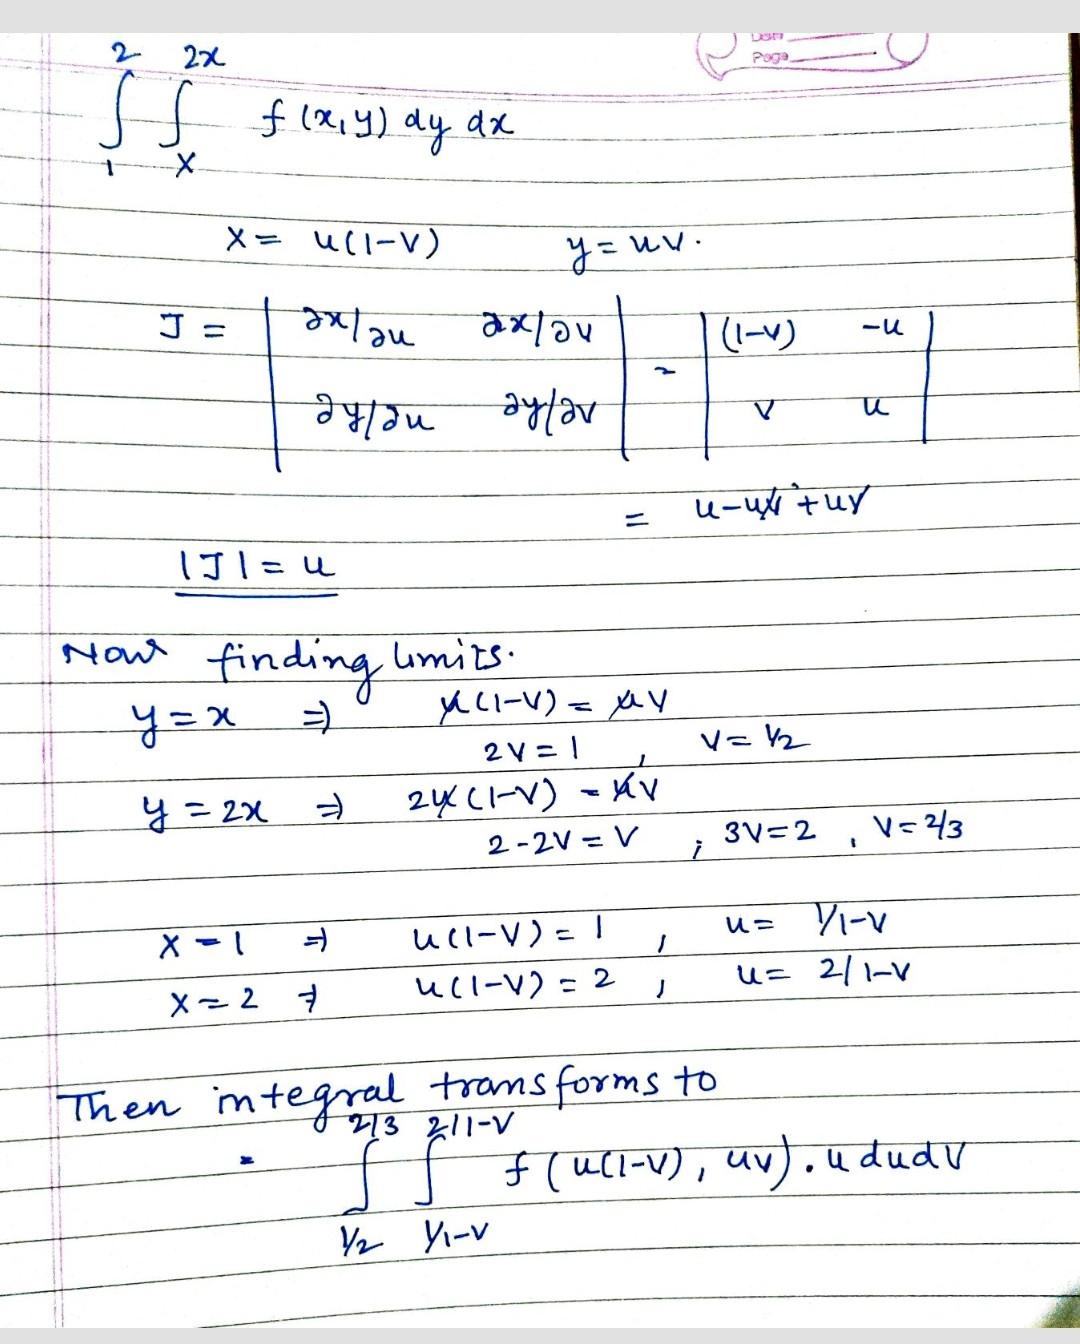 Date
Page
∫₁² ∫ₓ²ˣ f(x,y) dy dx
x = u(1-v) y = uv.
J = | ∂x/∂u ∂x/∂v | = | (1-v) -u |
| ∂y/∂u ∂y/∂v | | v u |
= u-uv+uv
|J| = u
Now finding limits.
y = x ⇒ u(1-v) = uv
2v = 1 , v = 1/2
y = 2x ⇒ 2u(1-v) = uv
2-2v = v ; 3v=2 , v=2/3
x = 1 ⇒ u(1-v) = 1 , u = 1/1-v
x = 2 ⇒ u(1-v) = 2 , u = 2/1-v
Then integral transforms to
= ∫_{1/2}^{2/3} ∫_{1/1-v}^{2/1-v} f(u(1-v), uv).u du dv